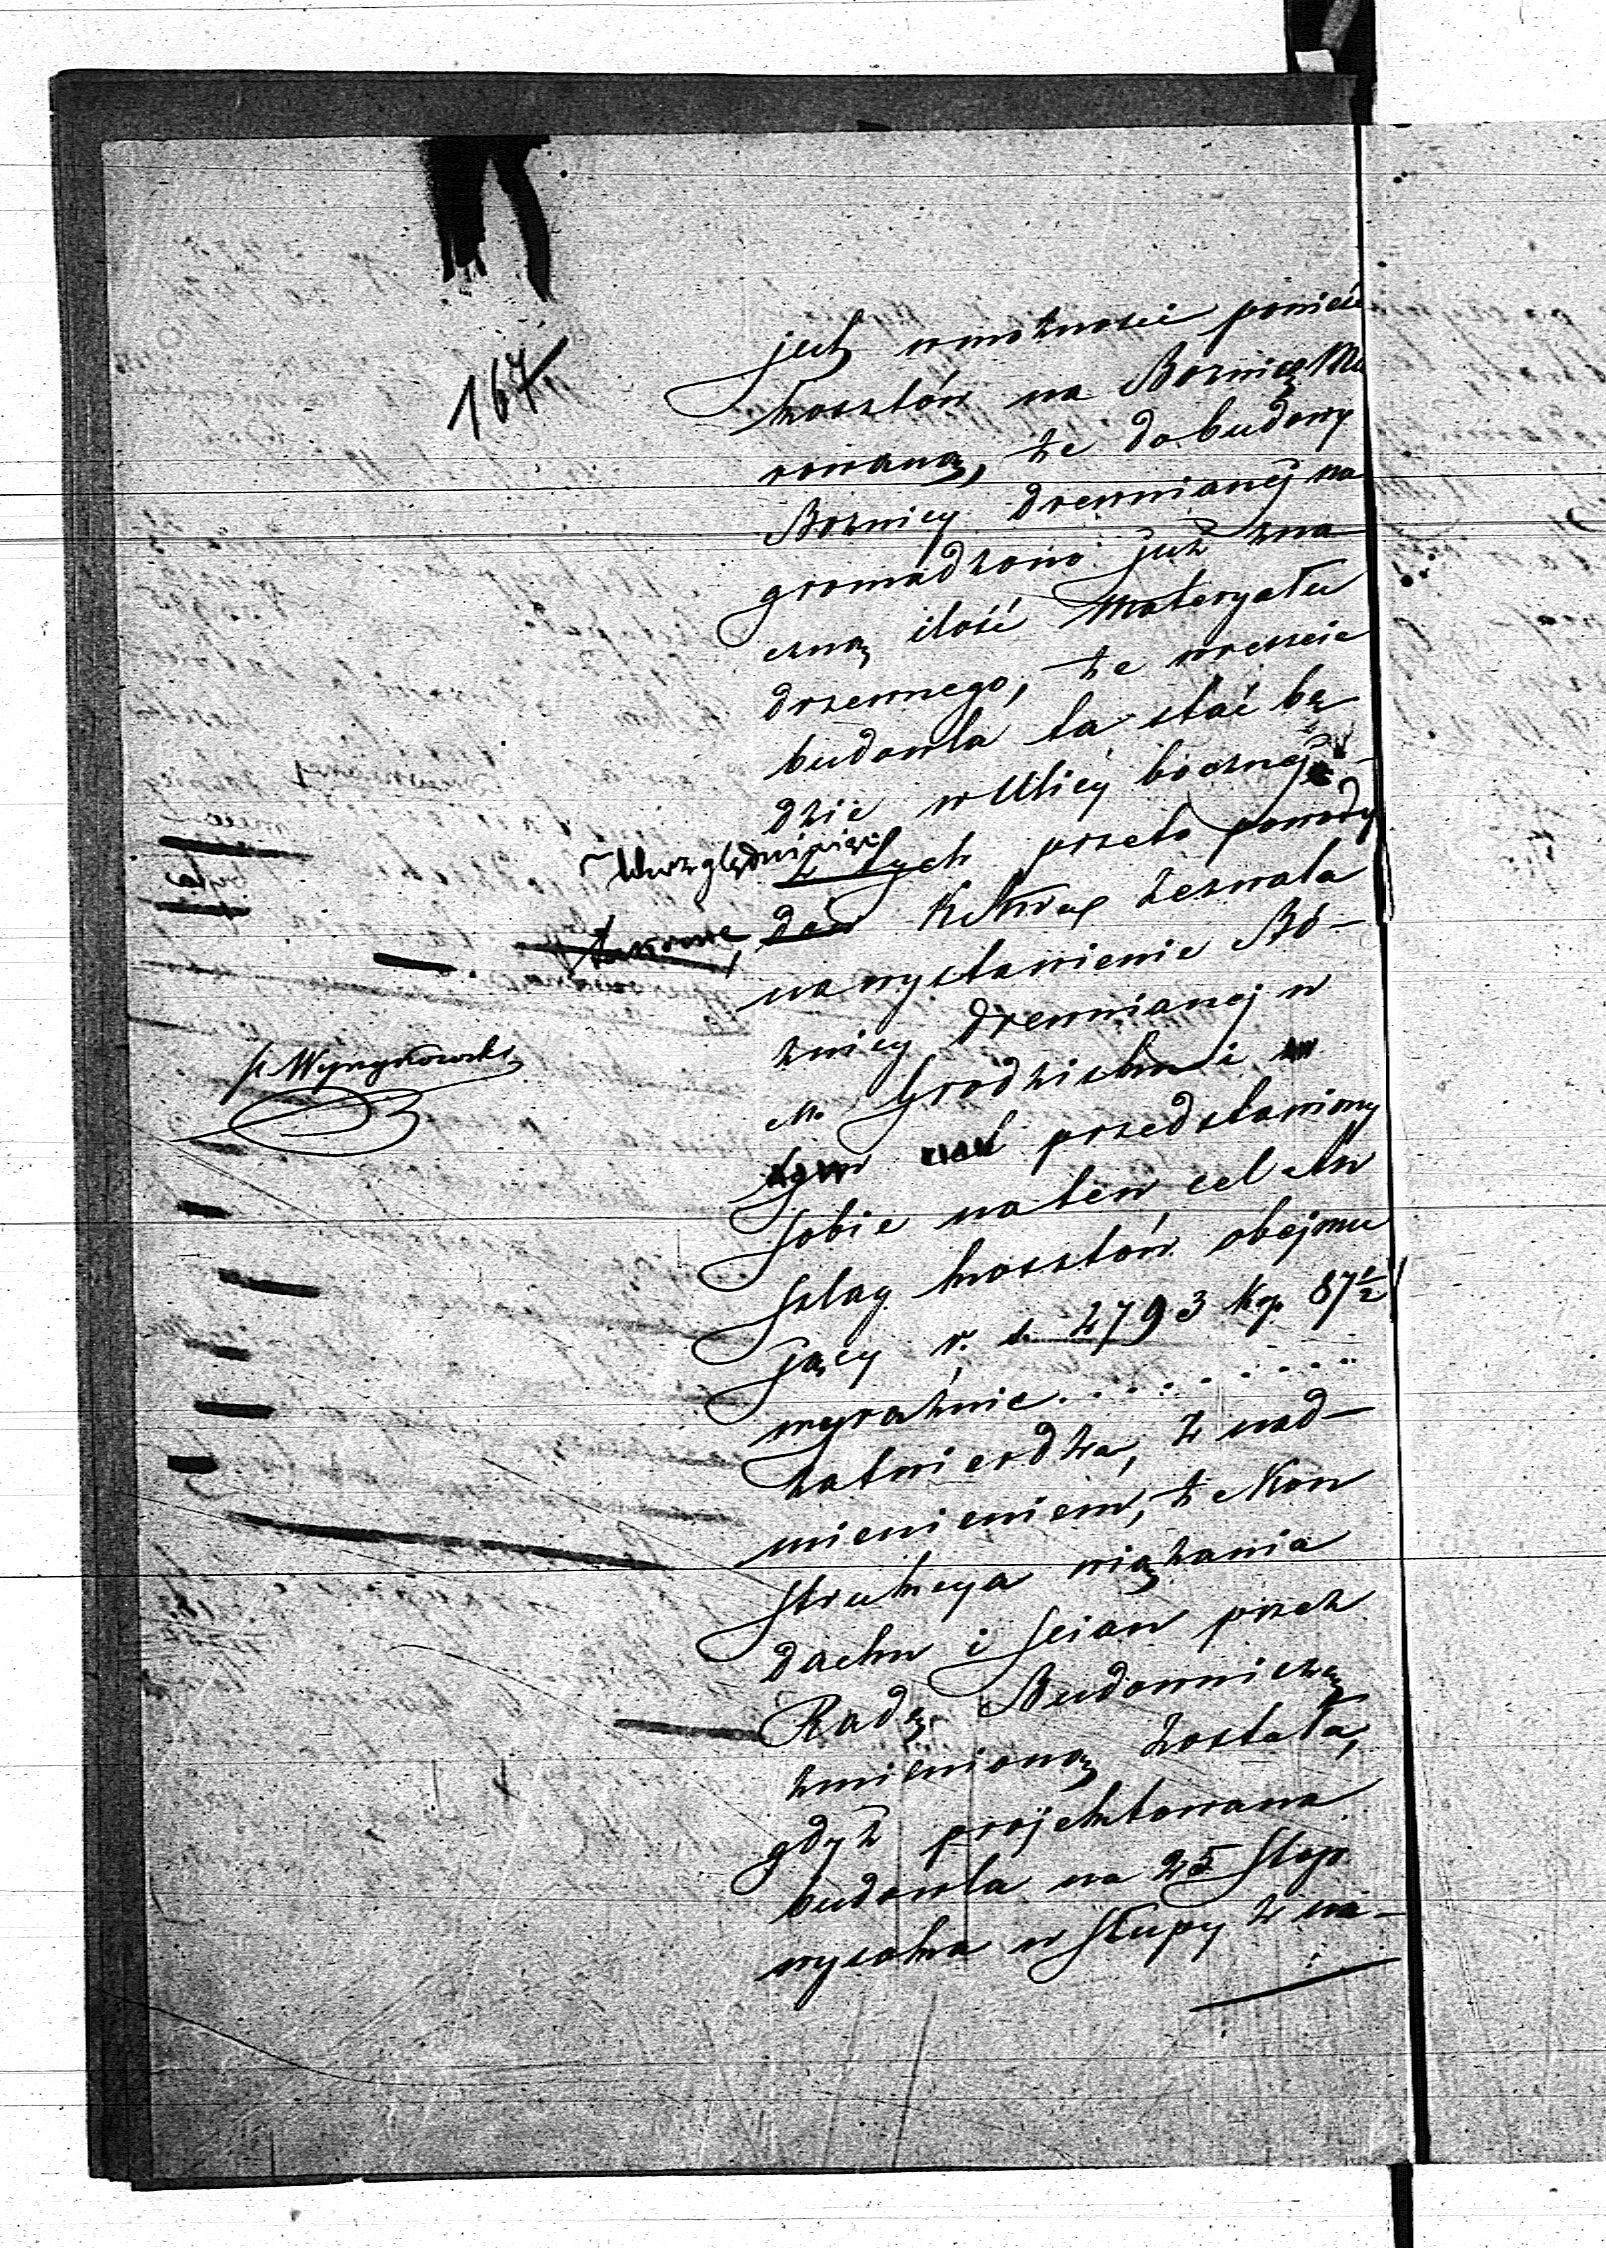 167
jest w możności ponieść
kosztów na Bożnicę Mu
rowaną, że do budowy
Bożnicy drewnianej na
gromadzono już zna
czną ilość Materyału
drzewnego, że wreszcie
budowla ta stać bę-
dzie w Ulicy bocznej
Uwzględniając
z tych przeto powody
takowe, K. Rząd zezwala
na wystawienie Bó-
żnicy drewnianej w
M. Grodzisku i
przedstawiony
sobie na ten cel An
szlag kosztów obejmu
jący r. s. 2793 kop. 87½
wyraźnie . . . . . . . . .
zatwierdza, z nad-
mienieniem, że Kon
strukcya wiązania
dachu i ścian przez
Radę Budowniczą
zmienioną została,
gdyż projektowana
budowla na 25 stop
wysoka w słupy z na-